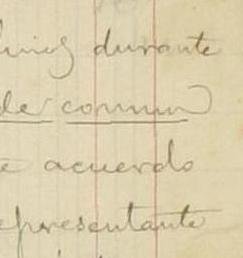 durante
de comun
e acuerdo
epresentante